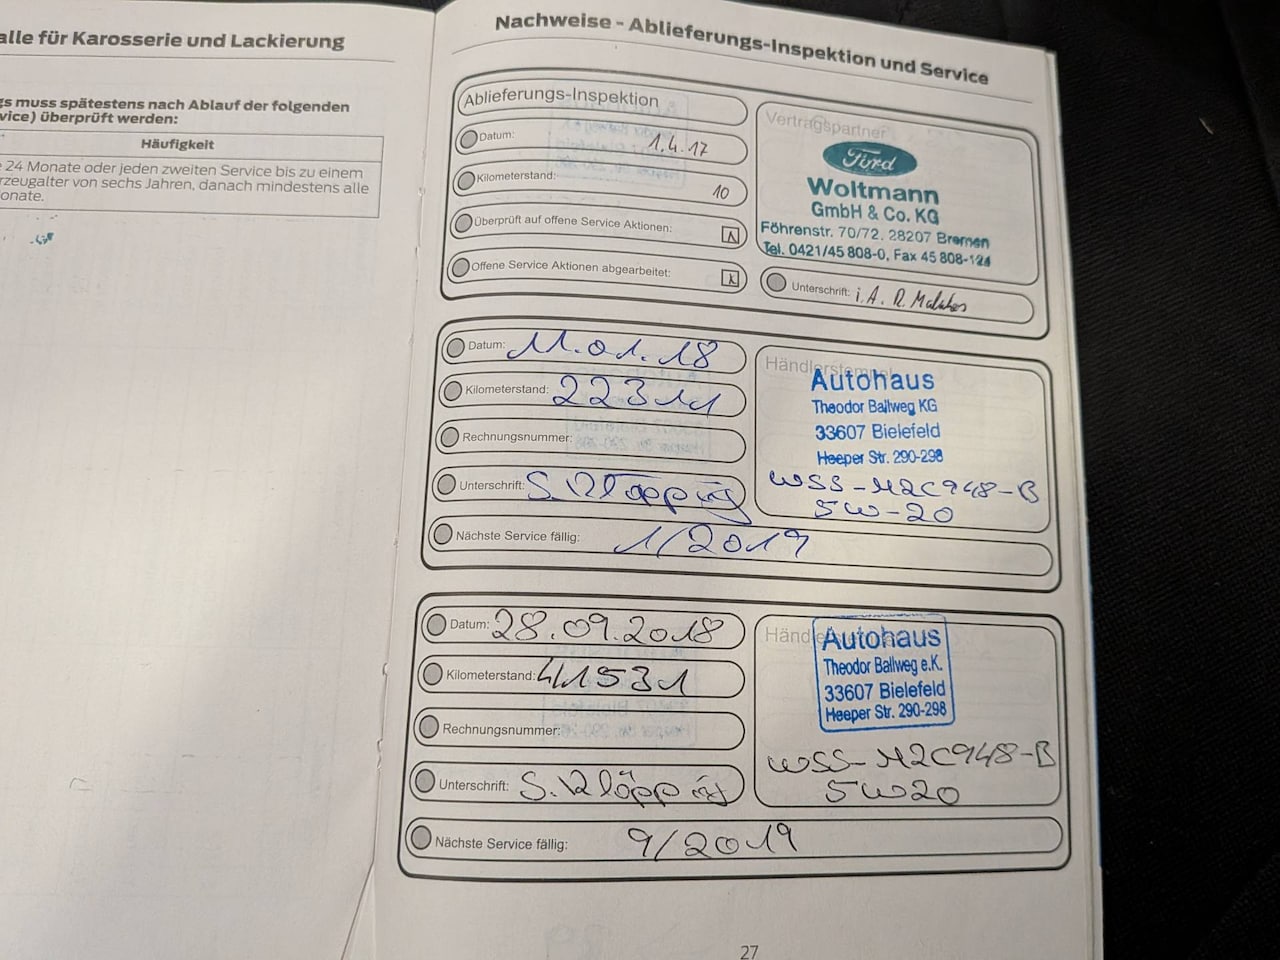 alle für Karosserie und Lackierung
gs muss spätestens nach Ablauf der folgenden
vice) überprüft werden:
Häufigkeit
24 Monate oder jeden zweiten Service bis zu einem
rzeugalter von sechs Jahren, danach mindestens alle
onate.
Nachweise - Ablieferungs-Inspektion und Service
Ablieferungs-Inspektion
Datum: 1.4.17
Kilometerstand: 10
Überprüft auf offene Service Aktionen:
Offene Service Aktionen abgearbeitet:
Vertragspartner
Ford
Woltmann
GmbH & Co. KG
Föhrenstr. 70/72, 28207 Bremen
Tel. 0421/45 808-0, Fax 45 808-124
Unterschrift: i.A. R.
Datum: 11.01.18
Kilometerstand: 22311
Rechnungsnummer:
Unterschrift: S. Klöpping
Händlerstempel
Autohaus
Theodor Ballweg KG
33607 Bielefeld
Heeper Str. 290-298
WSS-M2C948-B
5W-20
Nächste Service fällig: 1/2019
Datum: 28.09.2018
Kilometerstand: 41531
Rechnungsnummer:
Unterschrift: S. Klöpping
Autohaus
Theodor Ballweg e.K.
33607 Bielefeld
Heeper Str. 290-298
WSS-M2C948-B
5W20
Nächste Service fällig: 9/2019
27